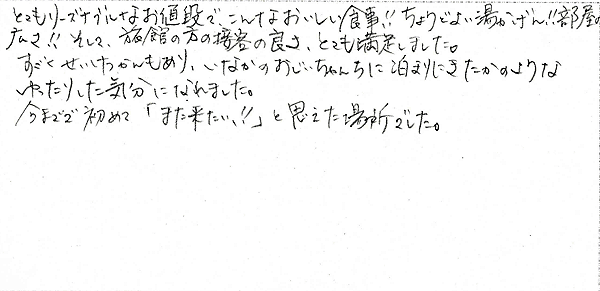 とてもリーズナブルなお値段で、こんなおいしい食事!! ちょうどよい湯かげん!! 部屋の
広さ!! そして、旅館の方の接客の良さ、とても満足しました。
すごくせいけつかんもあり、いなかのおじいちゃんちに泊まりにきたかのような
ゆったりした気分になれました。
今までで初めて「また来たい、!!」と思えた場所でした。